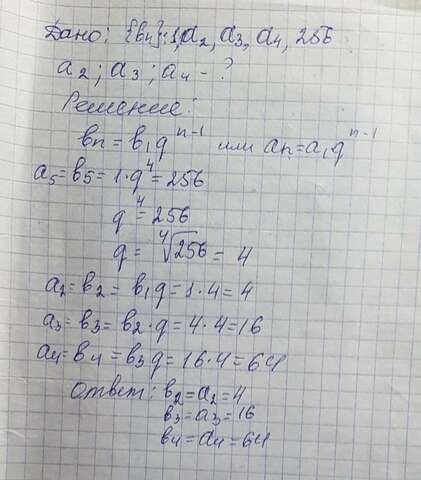 Дано: {bn}: 1, a2, a3, a4, 256
a2; a3; a4 - ?
Решение:
bn = b1q^n-1 или an = a1q^n-1
a5 = b5 = 1·q^4 = 256
q^4 = 256
q = ⁴√256 = 4
a2 = b2 = b1q = 1·4 = 4
a3 = b3 = b2·q = 4·4 = 16
a4 = b4 = b3q = 16·4 = 64
Ответ: b2 = a2 = 4
b3 = a3 = 16
b4 = a4 = 64